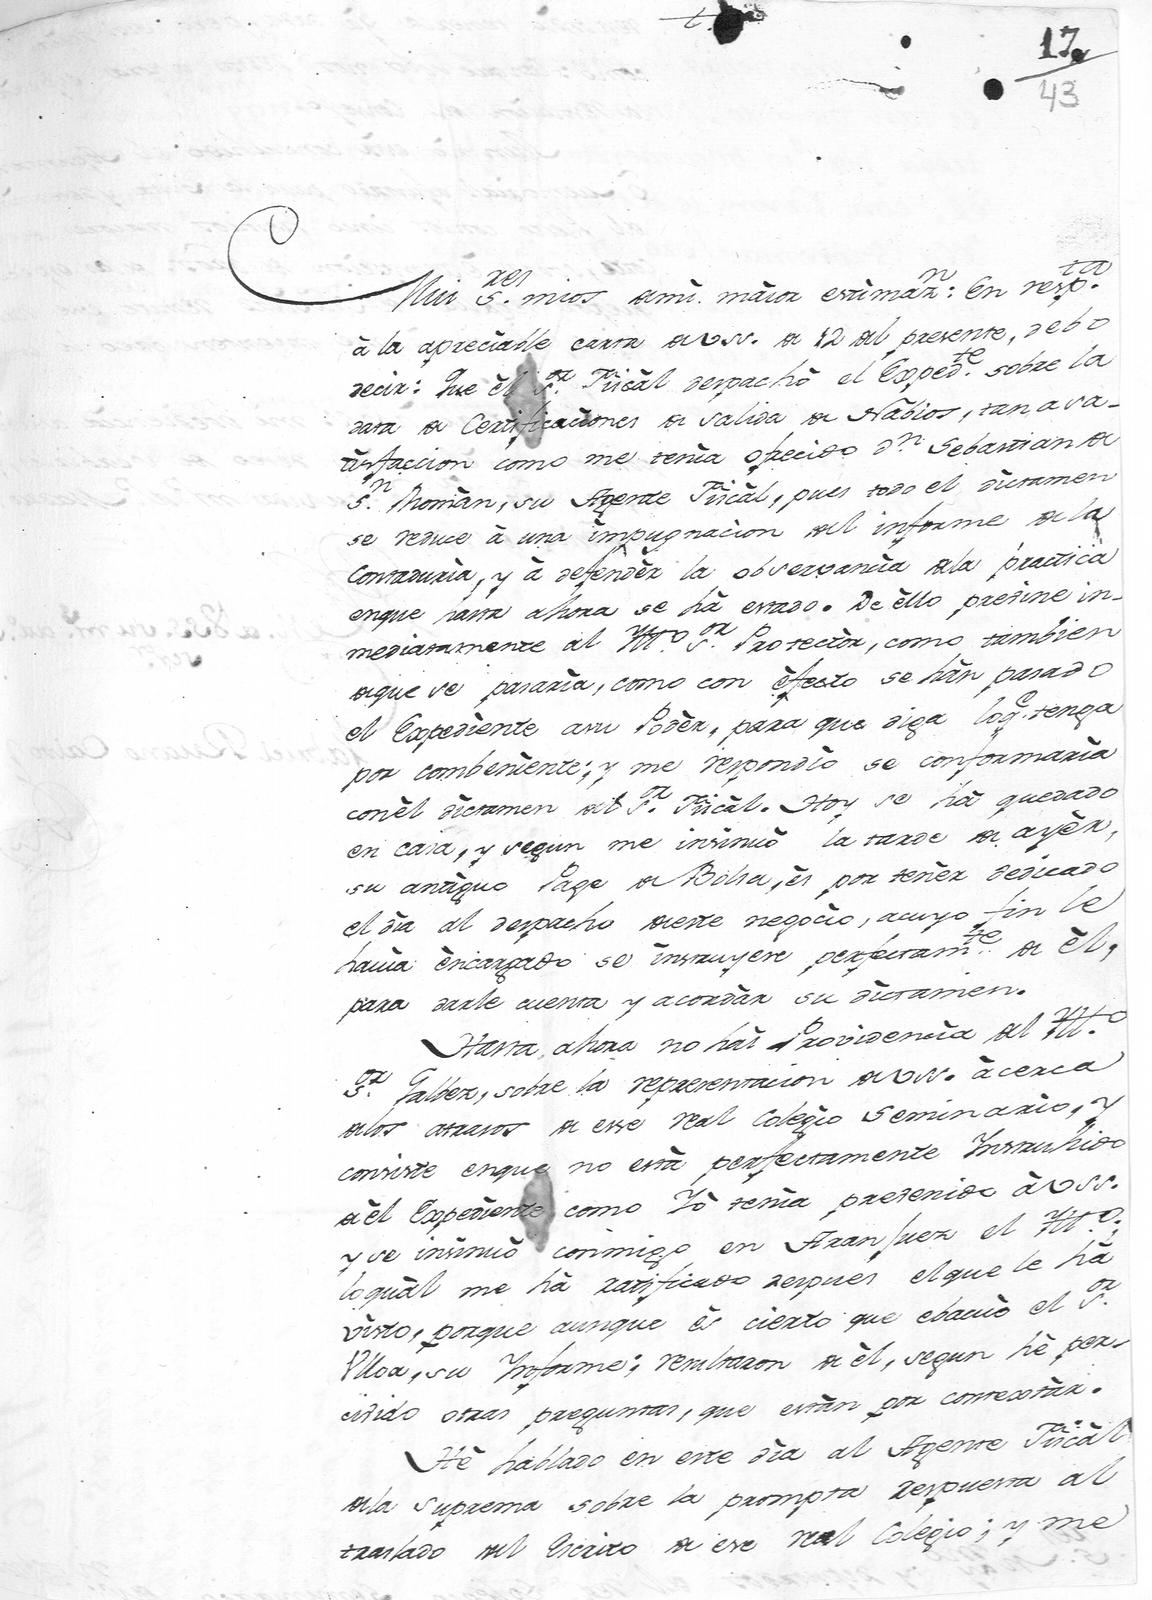 17
43
Mui S.res mios de mi maior estimaz.n: En resp.ta
à la apreciable carta de VSS. de 12 del presente, debo
decir: Que èl S.or Fiscàl despachò el Exped.te sobre la
data de Certificaciones de salida de Nàbios, tan a sa-
tisfaccion como me tenìa ofrecido d.n Sebastian de
S.n Romàn, su Agente Fiscàl, pues todo el dictamen
se reduce à una impugnacion del informe de la
Contadurìa, y à defendèr la observancia de la practica
enque hasta ahora se hà estado. De èllo previne in-
mediatamente al Ill.mo S.or Protectòr, como tambien
de que se pasarìa, como con efecto se hàn pasado
el Expediente a su Podèr, para que diga loq.e tenga
por combeniente; y me respondiò se conformarìa
conèl dictamen del S.or Fiscàl. Hoy se hà quedado
en casa, y segun me insinuò la tarde de ayèr,
su antiguo Page de Bolsa, ès por tenèr dedicado
el dia al despacho de este negocio, a cuyo fin le
havia èncargado se instruyese perfectam.te de èl,
para darle cuenta y acordàr su dictamen.
Hasta ahora no hài Providencia del Ill.mo
S.or Galbez, sobre la representacion de VSS. àcerca
de los atrasos de ese Real Colegio Seminàrio, y
consiste enque no està perfectamente Instruhido
de èl Expediente como Yò tenìa prevenido à VSS.
y se insinuò conmigo en Aranjuez el Ill.mo;
lo quàl me hà ratificado despues el que le hà
visto, porque aunque ès cierto que ebacuò el S.or
Ulloa, su Informe; resultaron de èl, segun hè per-
civido otras preguntas, que estàn por contextàr.
Hè hablado en este dìa al Agente Fiscàl
de la Suprema sobre la prompta Respuesta al
traslado del Escrito de ese Real Colegio; y me